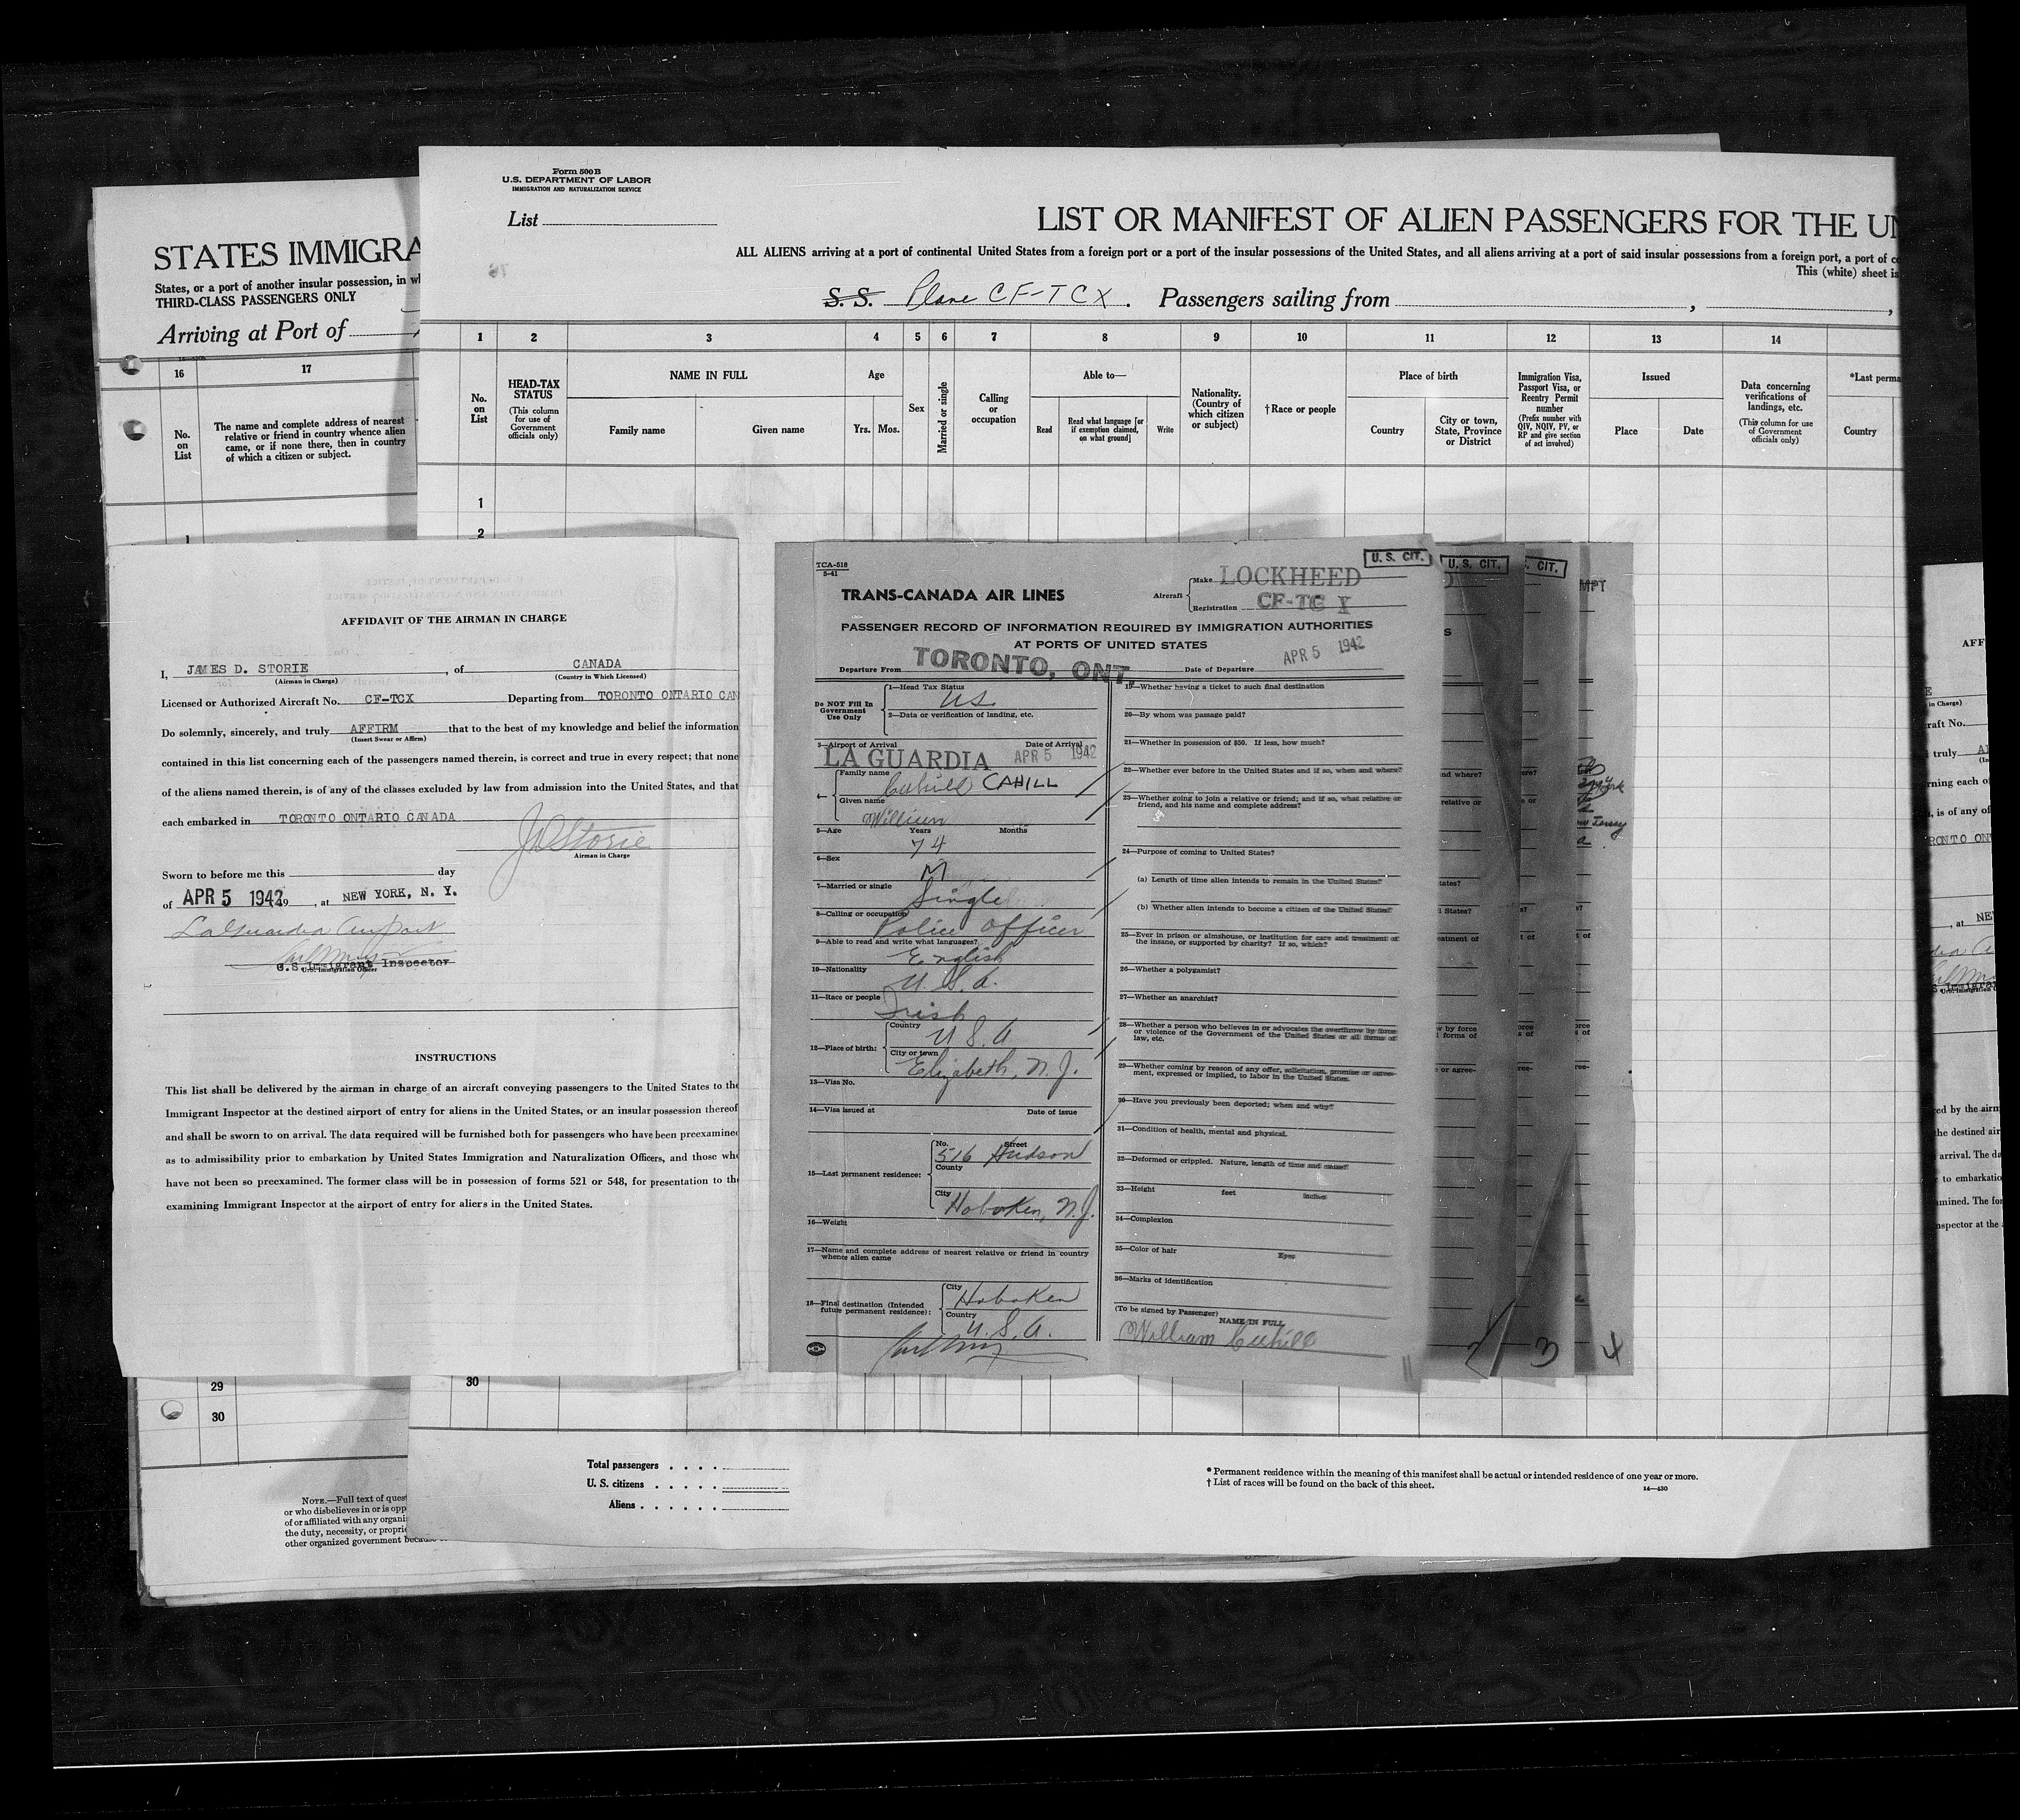 Form 500B
U.S. DEPARTMENT OF LABOR
IMMIGRATION AND NATURALIZATION SERVICE
List
LIST OR MANIFEST OF ALIEN PASSENGERS FOR THE UN
ALL ALIENS arriving at a port of continental United States from a foreign port or a port of the insular possessions of the United States, and all aliens arriving at a port of said insular possessions from a foreign port, a port of co
This (white) sheet is
S. S. Plane CF-TCX. Passengers sailing from
STATES IMMIGRA
States, or a port of another insular possession, in wh
THIRD-CLASS PASSENGERS ONLY
Arriving at Port of
16 17
No. on List
The name and complete address of nearest
relative or friend in country whence alien
came, or if none there, then in country
of which a citizen or subject.
1
1 2 3 4 5 6 7 8 9 10 11 12 13 14
No. on List
HEAD-TAX STATUS
(This column for use of Government officials only)
NAME IN FULL
Family name Given name
Age
Yrs. Mos.
Sex
Married or single
Calling or occupation
Able to—
Read
Read what language [or if exemption claimed, on what ground]
Write
Nationality. (Country of which citizen or subject)
†Race or people
Place of birth
Country
City or town, State, Province or District
Immigration Visa, Passport Visa, or Reentry Permit number
(Prefix number with QIV, NQIV, PV, or RP and give section of act involved)
Issued
Place Date
Data concerning verifications of landings, etc.
(This column for use of Government officials only)
*Last perma
Country
1
2
AFFIDAVIT OF THE AIRMAN IN CHARGE
I, JAMES D. STORIE, of CANADA
(Airman in Charge) (Country in Which Licensed)
Licensed or Authorized Aircraft No. CF-TCX Departing from TORONTO ONTARIO CAN
Do solemnly, sincerely, and truly AFFIRM that to the best of my knowledge and belief the information
(Insert Swear or Affirm)
contained in this list concerning each of the passengers named therein, is correct and true in every respect; that none
of the aliens named therein, is of any of the classes excluded by law from admission into the United States, and that
each embarked in TORONTO ONTARIO CANADA
JDStorie
Airman in Charge
Sworn to before me this day
of APR 5 1942 19 , at NEW YORK, N. Y.
LaGuardia Airport
U.S. Immigrant Inspector
U.S. Immigration Officer
INSTRUCTIONS
This list shall be delivered by the airman in charge of an aircraft conveying passengers to the United States to the
Immigrant Inspector at the destined airport of entry for aliens in the United States, or an insular possession thereof
and shall be sworn to on arrival. The data required will be furnished both for passengers who have been preexamined
as to admissibility prior to embarkation by United States Immigration and Naturalization Officers, and those who
have not been so preexamined. The former class will be in possession of forms 521 or 548, for presentation to the
examining Immigrant Inspector at the airport of entry for aliens in the United States.
TCA-518
5-41
U. S. CIT.
TRANS-CANADA AIR LINES
Aircraft
Make LOCKHEED
Registration CF-TC X
PASSENGER RECORD OF INFORMATION REQUIRED BY IMMIGRATION AUTHORITIES
AT PORTS OF UNITED STATES
Departure From TORONTO, ONT. Date of Departure APR 5 1942
Do NOT Fill In Government Use Only
1—Head Tax Status US
2—Data or verification of landing, etc.
3—Airport of Arrival LA GUARDIA Date of Arrival APR 5 1942
4— Family name Cahill CAHILL
Given name William
5—Age Years 74 Months
6—Sex M
7—Married or single Single
8—Calling or occupation Police Officer
9—Able to read and write what languages? English
10—Nationality U.S.A.
11—Race or people Irish
12—Place of birth: Country U S A
City or town Elizabeth, N. J.
13—Visa No.
14—Visa issued at Date of issue
15—Last permanent residence: No. 516 Street Hudson
County
City Hoboken, N.J.
16—Weight
17—Name and complete address of nearest relative or friend in country
whence alien came
18—Final destination (Intended future permanent residence): City Hoboken
Country U.S.A.
19—Whether having a ticket to such final destination
20—By whom was passage paid?
21—Whether in possession of $50. If less, how much?
22—Whether ever before in the United States and if so, when and where?
23—Whether going to join a relative or friend; and if so, what relative or
friend, and his name and complete address?
24—Purpose of coming to United States?
(a) Length of time alien intends to remain in the United States?
(b) Whether alien intends to become a citizen of the United States?
25—Ever in prison or almshouse, or institution for care and treatment of
the insane, or supported by charity? If so, which?
26—Whether a polygamist?
27—Whether an anarchist?
28—Whether a person who believes in or advocates the overthrow by force
or violence of the Government of the United States or all forms of
law, etc.
29—Whether coming by reason of any offer, solicitation, promise or agree-
ment, expressed or implied, to labor in the United States.
30—Have you previously been deported; when and why?
31—Condition of health, mental and physical.
32—Deformed or crippled. Nature, length of time and cause?
33—Height feet inches
34—Complexion
35—Color of hair Eyes
36—Marks of identification
(To be signed by Passenger)
NAME IN FULL
William Cahill
U. S. CIT.
S. CIT.
MPT
2 3 4
29
30
30
Total passengers
U. S. citizens
Aliens
* Permanent residence within the meaning of this manifest shall be actual or intended residence of one year or more.
† List of races will be found on the back of this sheet.
14—430
NOTE.—Full text of quest
or who disbelieves in or is opp
of or affiliated with any organi
the duty, necessity, or proprie
other organized government becau